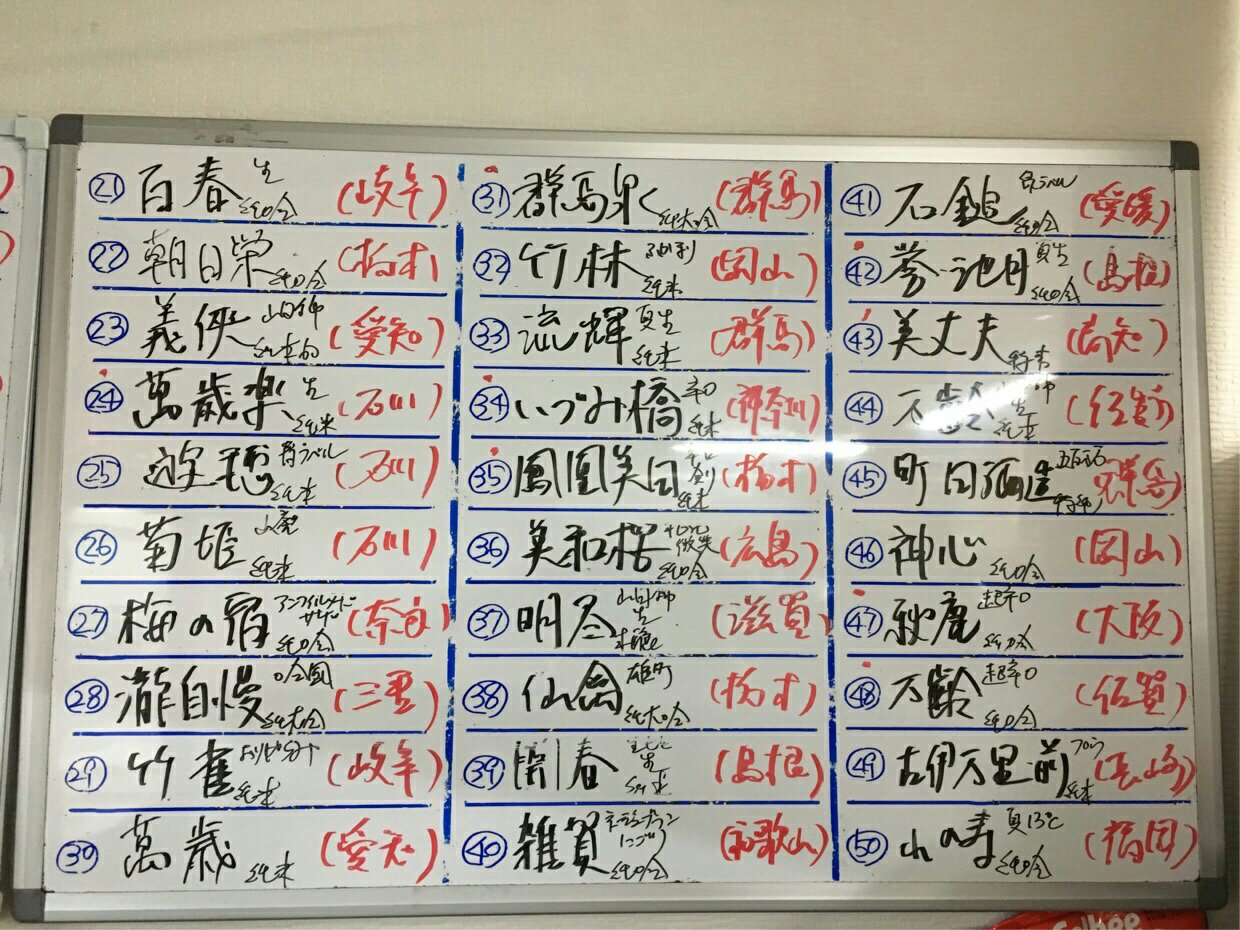 ㉑ 百春 生 純吟 (岐阜)
㉒ 朝日栄 純吟 (栃木)
㉓ 義侠 山田錦 純米 (愛知)
㉔ 萬歳楽 生 純米 (石川)
㉕ 遊穂 青ラベル 純米 (石川)
㉖ 菊姫 山廃 純米 (石川)
㉗ 梅の宿 アンフィルタード サンド 純吟 (奈良)
㉘ 瀧自慢 純大吟 (三重)
㉙ 竹雀 純米 (岐阜)
㉚ 萬歳 純米 (愛知)
㉛ 群馬泉 純大吟 (群馬)
㉜ 竹林 純米 (岡山)
㉝ 流輝 夏生 純米 (群馬)
㉞ いづみ橋 辛口 純米 (神奈川)
㉟ 鳳凰美田 純米 (栃木)
㊱ 美和桜 純吟 (広島)
㊲ 明尽 山田錦 生 (滋賀)
㊳ 仙禽 雄町 純大吟 (栃木)
㊴ 開春 生 純米 (島根)
㊵ 雑賀 純吟 (和歌山)
㊶ 石鎚 純吟 (愛媛)
㊷ 誉池月 夏生 純吟 (島根)
㊸ 美丈夫 特本 (高知)
㊹ 不齢 純米 (佐賀)
㊺ 町田酒造 五百万石 特純 (群馬)
㊻ 神心 純吟 (岡山)
㊼ 秋鹿 超辛口 (大阪)
㊽ 万齢 超辛口 純吟 (佐賀)
㊾ 古伊万里 前 純米 (長崎)
㊿ 山の寿 夏13℃ 純吟 (福岡)
Calbee